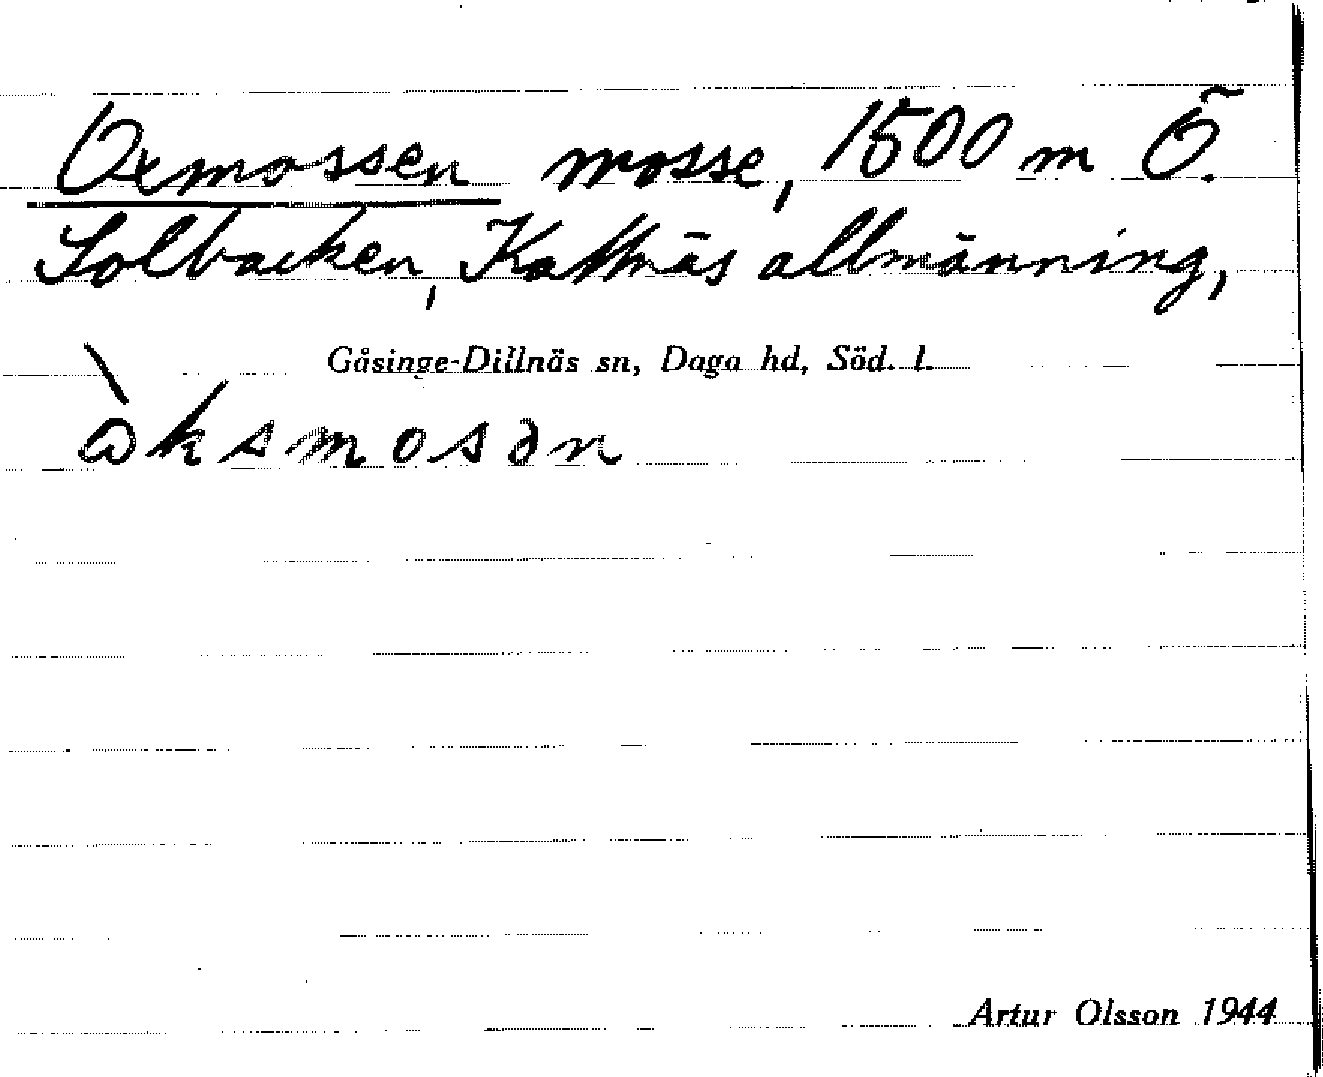 Oxmossen mosse, 1500 m Ö.
Solbacken, Kattnäs allmänning,
Gåsinge-Dillnäs sn, Daga hd, Söd. l.
ὼksmosən
Artur Olsson 1944